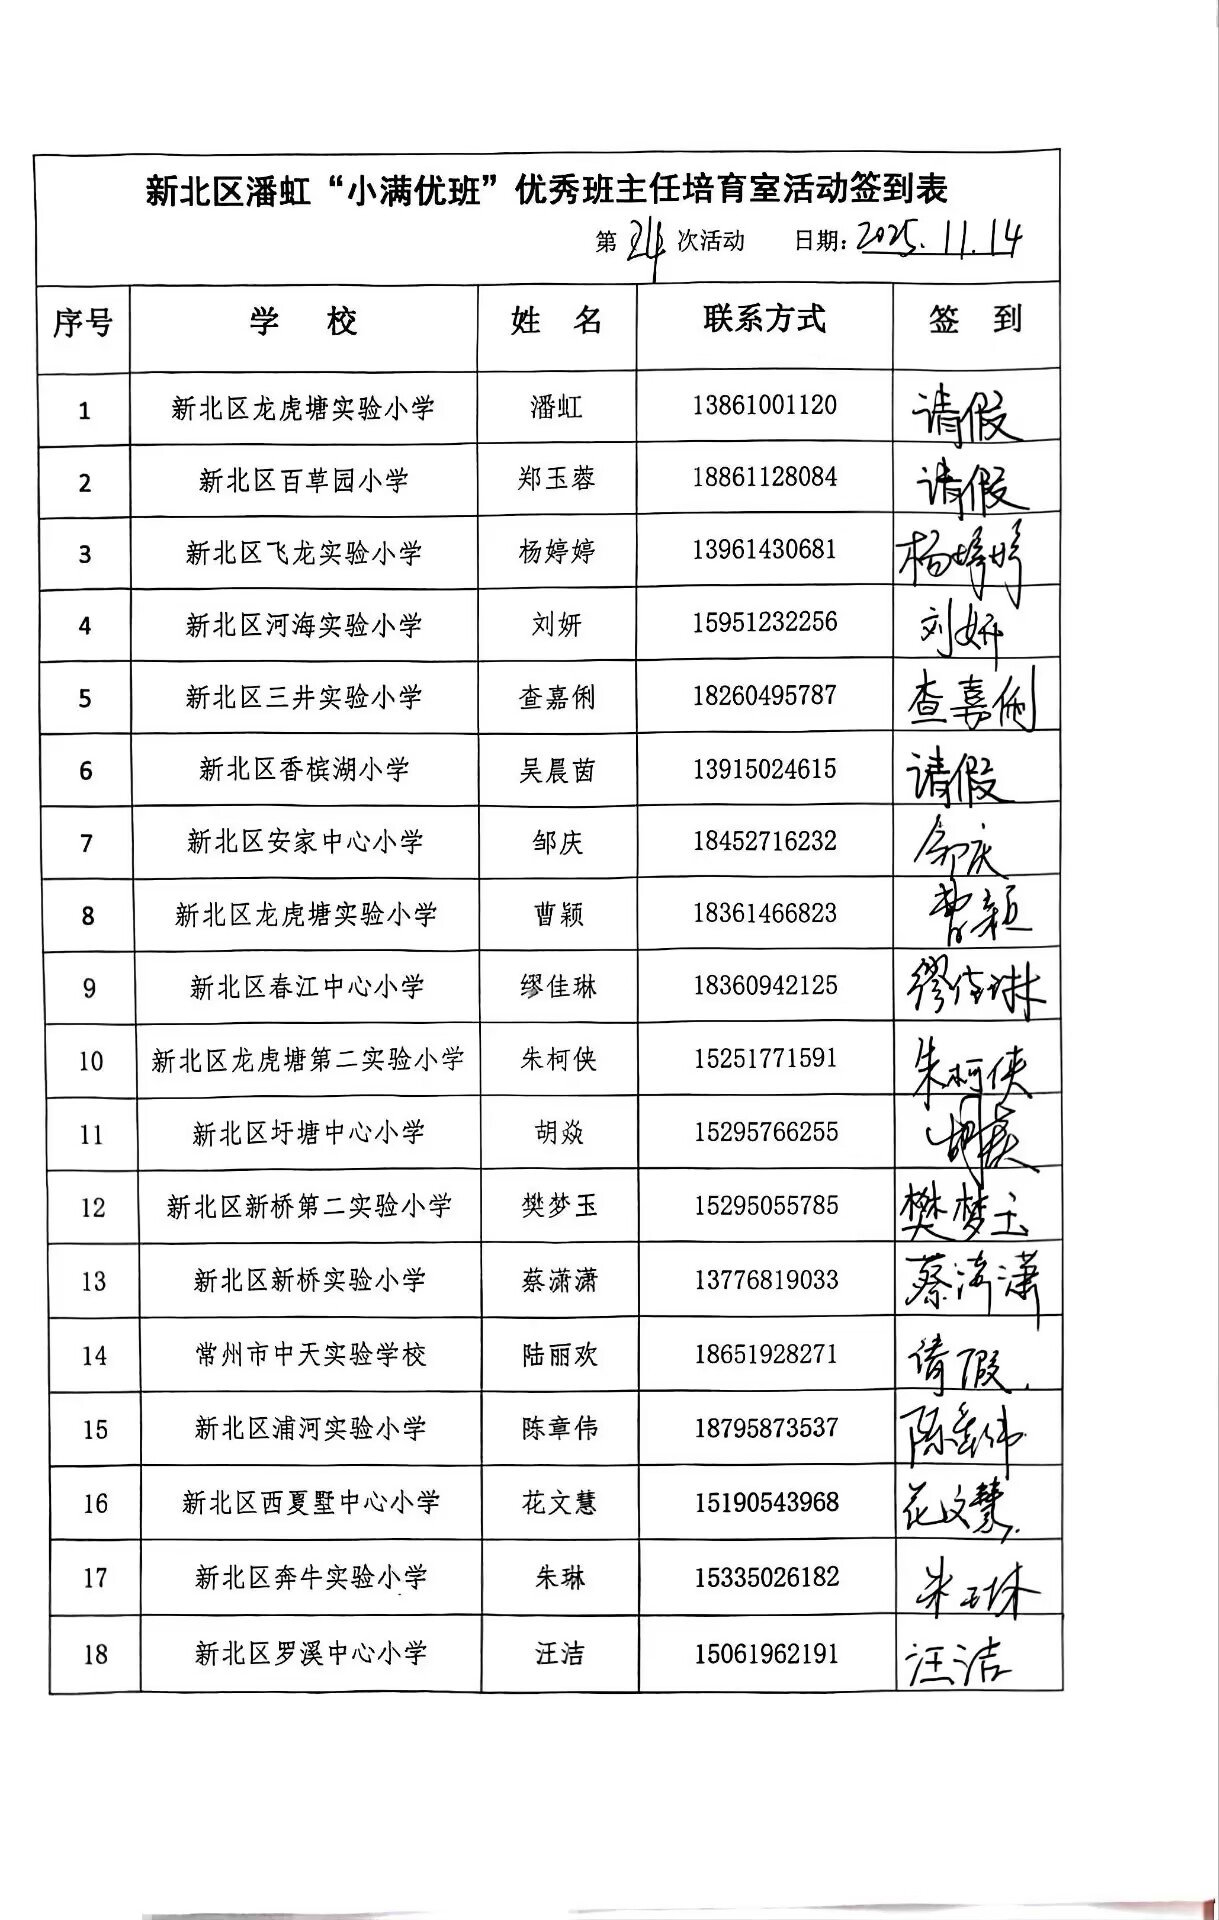 新北区潘虹“小满优班”优秀班主任培育室活动签到表
第 24 次活动 日期：2025.11.14
序号 学 校 姓 名 联系方式 签 到
1 新北区龙虎塘实验小学 潘虹 13861001120 请假
2 新北区百草园小学 郑玉蓉 18861128084 请假
3 新北区飞龙实验小学 杨婷婷 13961430681 杨婷婷
4 新北区河海实验小学 刘妍 15951232256 刘妍
5 新北区三井实验小学 查嘉俐 18260495787 查嘉俐
6 新北区香槟湖小学 吴晨茵 13915024615 请假
7 新北区安家中心小学 邹庆 18452716232 邹庆
8 新北区龙虎塘实验小学 曹颖 18361466823 曹颖
9 新北区春江中心小学 缪佳琳 18360942125 缪佳琳
10 新北区龙虎塘第二实验小学 朱柯侠 15251771591 朱柯侠
11 新北区圩塘中心小学 胡焱 15295766255 胡焱
12 新北区新桥第二实验小学 樊梦玉 15295055785 樊梦玉
13 新北区新桥实验小学 蔡潇潇 13776819033 蔡潇潇
14 常州市中天实验学校 陆丽欢 18651928271 请假.
15 新北区浦河实验小学 陈章伟 18795873537 陈章伟
16 新北区西夏墅中心小学 花文慧 15190543968 花文慧
17 新北区奔牛实验小学 朱琳 15335026182 朱琳
18 新北区罗溪中心小学 汪洁 15061962191 汪洁